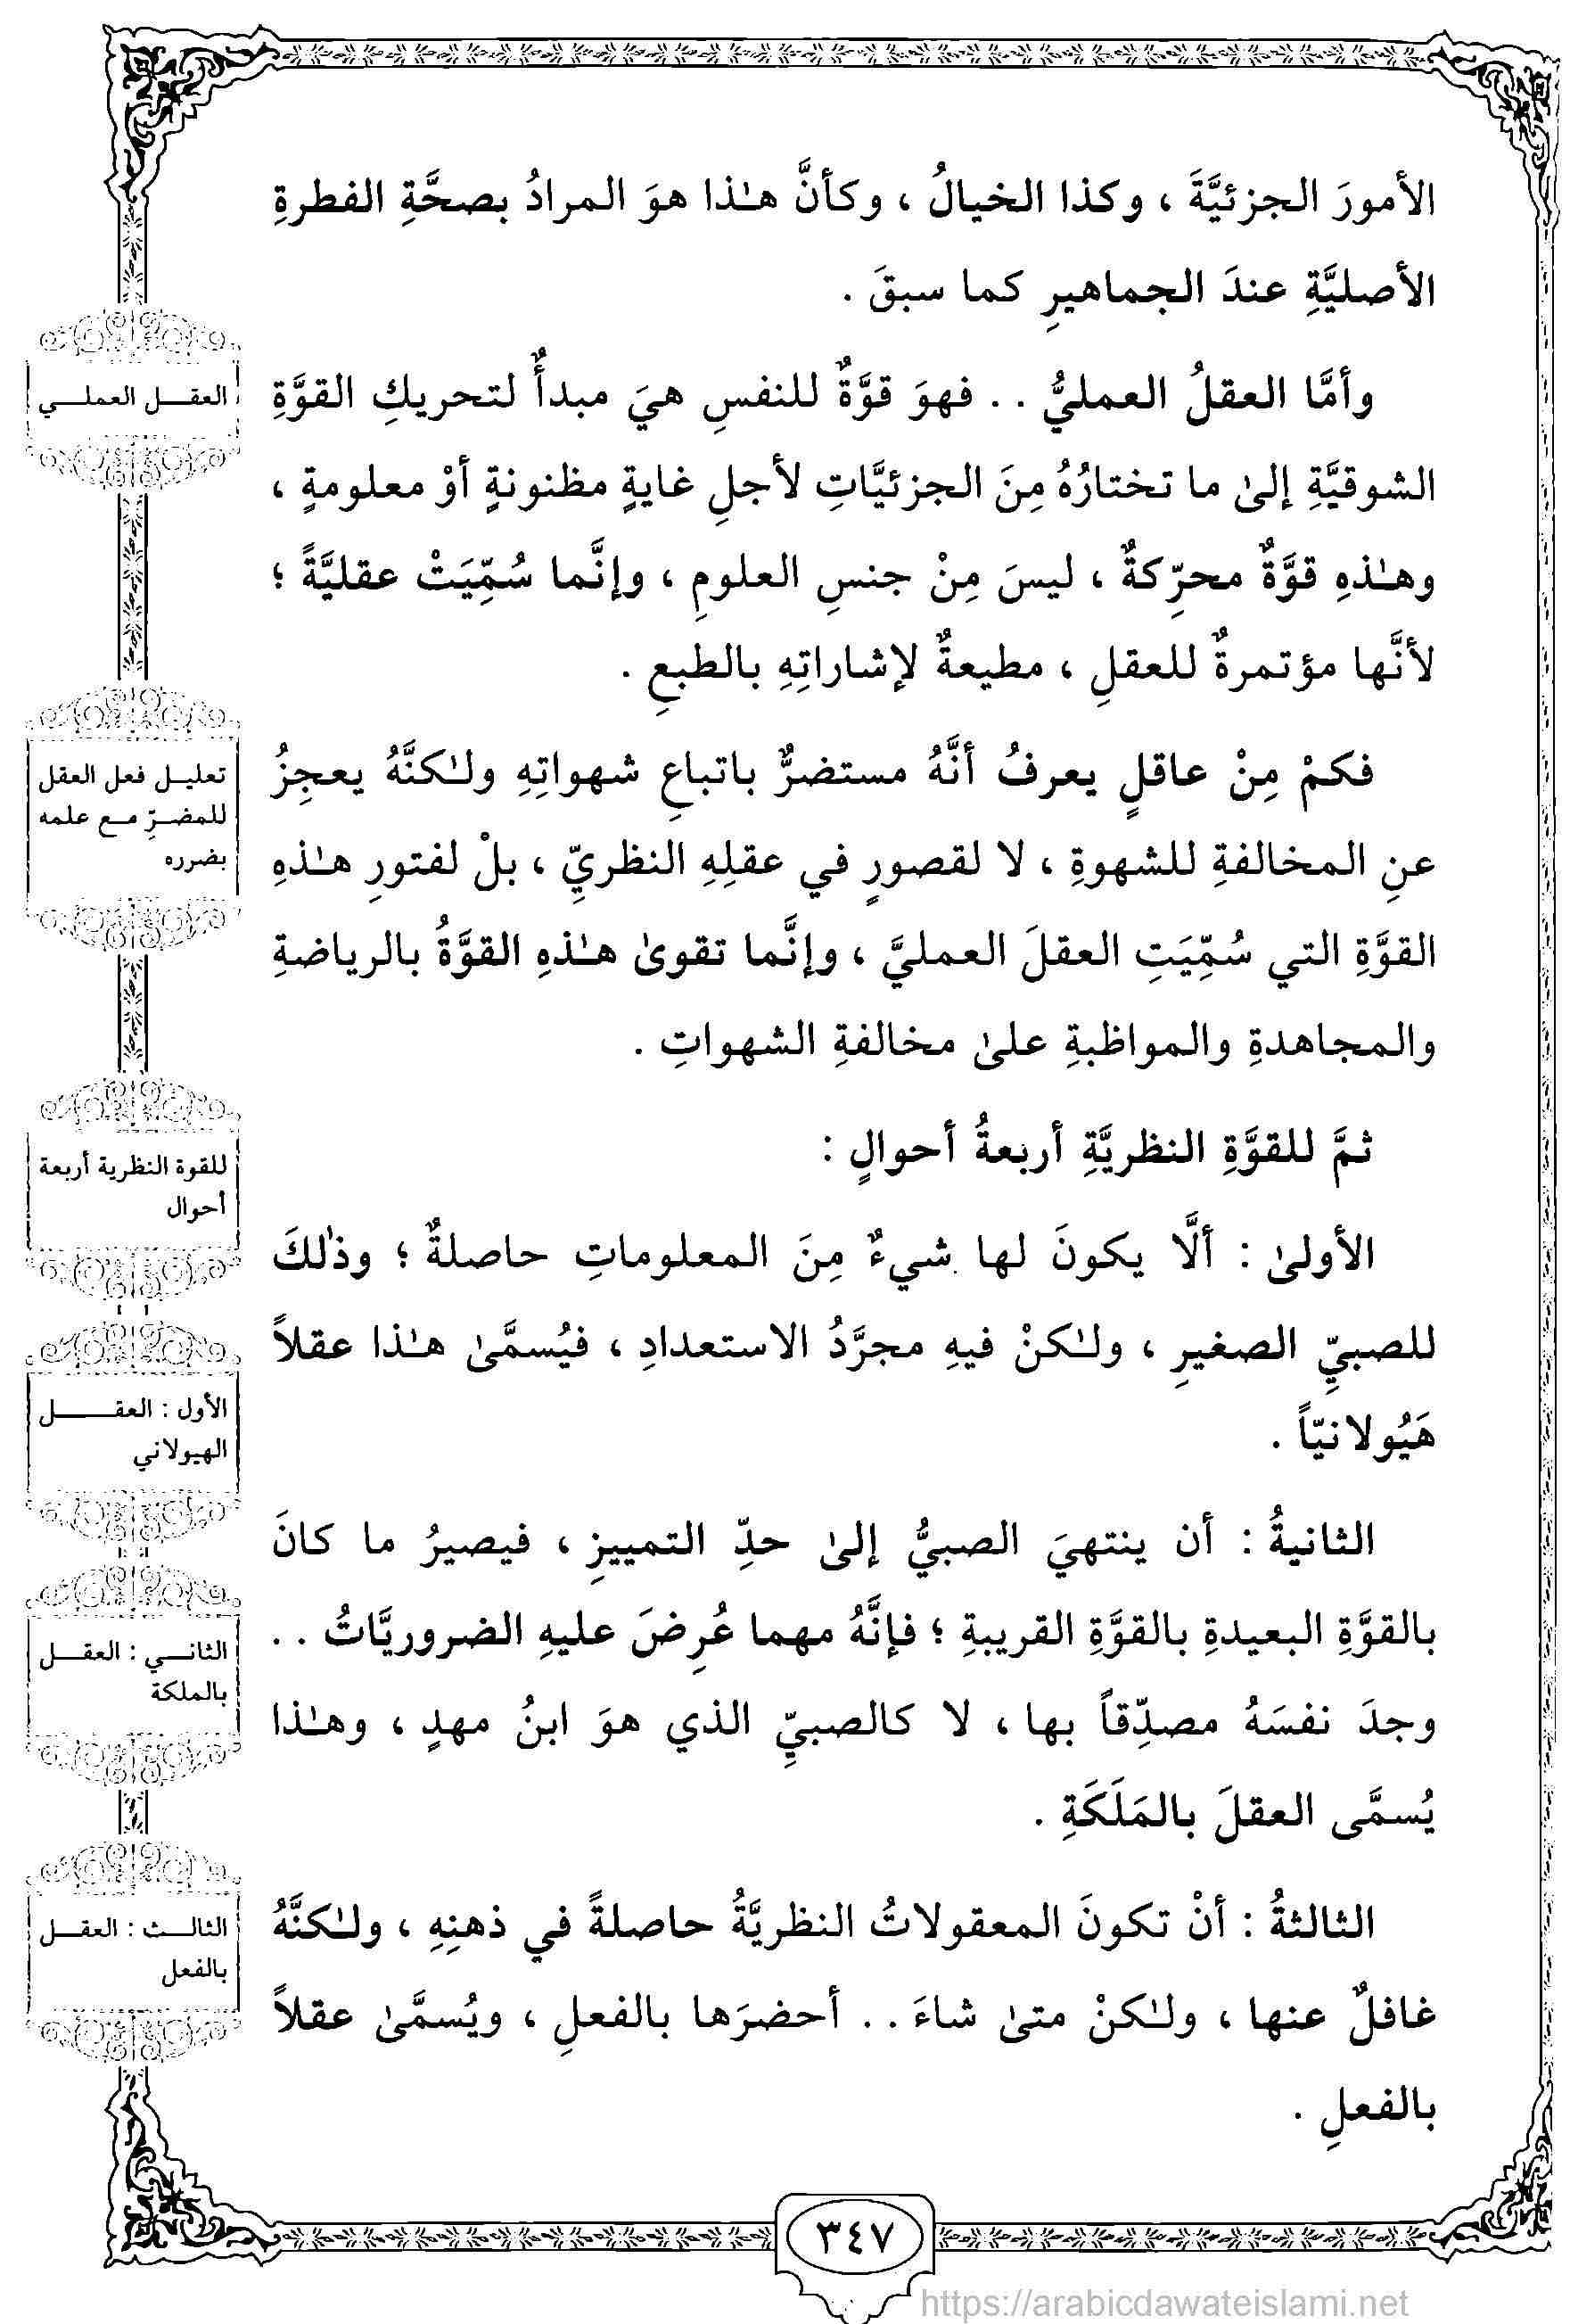 الأمورَ الجزئيَّةَ ، وكذا الخيالُ ، وكأنَّ هـٰذا هوَ المرادُ بصحَّةِ الفطرةِ
الأصليَّةِ عندَ الجماهيرِ كما سبقَ .
العقـــل العملـــي
وأمَّا العقلُ العمليُّ . . فهوَ قوَّةٌ للنفسِ هيَ مبدأٌ لتحريكِ القوَّةِ
الشوقيَّةِ إلىٰ ما تختارُهُ مِنَ الجزئيَّاتِ لأجلِ غايةٍ مظنونةٍ أوْ معلومةٍ ،
وهـٰذهِ قوَّةٌ محرِّكةٌ ، ليسَ مِنْ جنسِ العلومِ ، وإنَّما سُمِّيَتْ عقليَّةً ؛
لأنَّها مؤتمرةٌ للعقلِ ، مطيعةٌ لإشاراتِهِ بالطبعِ .
تعليـل فعل العقل
للمضـرِّ مـع علمه
بضرره
فكمْ مِنْ عاقلٍ يعرفُ أنَّهُ مستضرٌّ باتباعِ شهواتِهِ ولـٰكنَّهُ يعجِزُ
عنِ المخالفةِ للشهوةِ ، لا لقصورٍ في عقلِهِ النظريِّ ، بلْ لفتورِ هـٰذهِ
القوَّةِ التي سُمِّيَتِ العقلَ العمليَّ ، وإنَّما تقوىٰ هـٰذهِ القوَّةُ بالرياضةِ
والمجاهدةِ والمواظبةِ علىٰ مخالفةِ الشهواتِ .
للقوة النظرية أربعة
أحوال
ثمَّ للقوَّةِ النظريَّةِ أربعةُ أحوالٍ :
الأولىٰ : ألَّا يكونَ لها شيءٌ مِنَ المعلوماتِ حاصلةٌ ؛ وذٰلكَ
للصبيِّ الصغيرِ ، ولـٰكنْ فيهِ مجرَّدُ الاستعدادِ ، فيُسمَّىٰ هـٰذا عقلاً
هَيُولانيّاً .
الأول : العقـــــــل
الهيولاني
الثانيةُ : أن ينتهيَ الصبيُّ إلىٰ حدِّ التمييزِ ، فيصيرُ ما كانَ
بالقوَّةِ البعيدةِ بالقوَّةِ القريبةِ ؛ فإنَّهُ مهما عُرِضَ عليهِ الضروريَّاتُ . .
وجدَ نفسَهُ مصدِّقاً بها ، لا كالصبيِّ الذي هوَ ابنُ مهدٍ ، وهـٰذا
يُسمَّى العقلَ بالمَلَكَةِ .
الثانـــي : العقـــل
بالملكة
الثالثةُ : أنْ تكونَ المعقولاتُ النظريَّةُ حاصلةً في ذهنِهِ ، ولـٰكنَّهُ
غافلٌ عنها ، ولـٰكنْ متىٰ شاءَ . . أحضرَها بالفعلِ ، ويُسمَّىٰ عقلاً
بالفعلِ .
الثالـــث : العقـــل
بالفعل
٣٤٧
https://arabicdawateislami.net